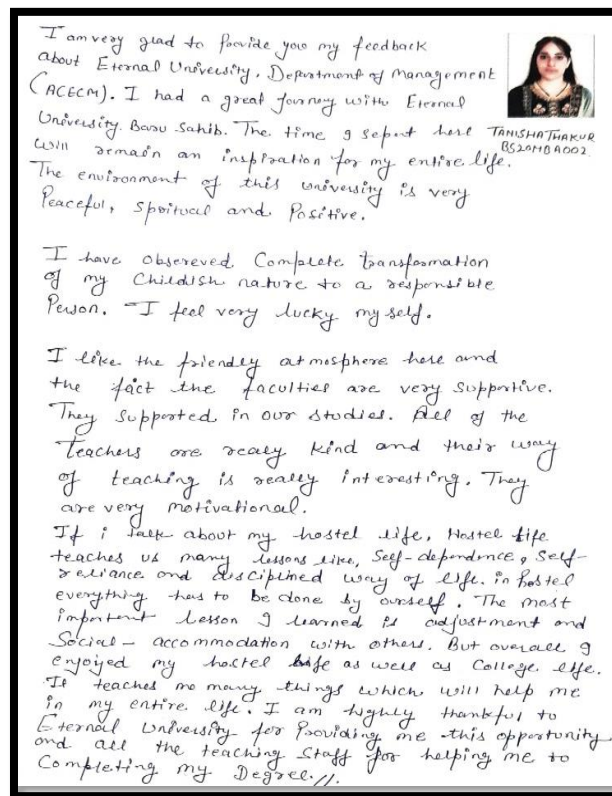 I am very glad to provide you my feedback
about Eternal University, Department of Management
(ACECM). I had a great Journey with Eternal
University. Baru Sahib. The time I sepent here
TANISHA THAKUR
BS20MBA002
will remain an inspiration for my entire life.
The environment of this university is very
Peaceful, Spritucal and Positive.
I have obsereved Complete transformation
of my Childish nature to a responsible
Person. I feel very lucky my self.
I like the friendly atmosphere here and
the fact the faculties are very Supportive.
They Supported in our studies. All of the
teachers are realy kind and their way
of teaching is really interesting. They
are very motivational.
If i talk about my hostel life, Hostel life
teaches us many lessons like, Self-dependnce, Self-
reliance and disciplined way of life. in hostel
everything has to be done by ourself. The most
important Lesson I learned is adjustment and
Social - accommodation with others. But overall I
enjoyed my hostel life as well as College life.
It teaches me many things which will help me
in my entire life. I am highly thankful to
Eternal University for Providing me this opportunity
and all the teaching Staff for helping me to
Completing my Degree.//.